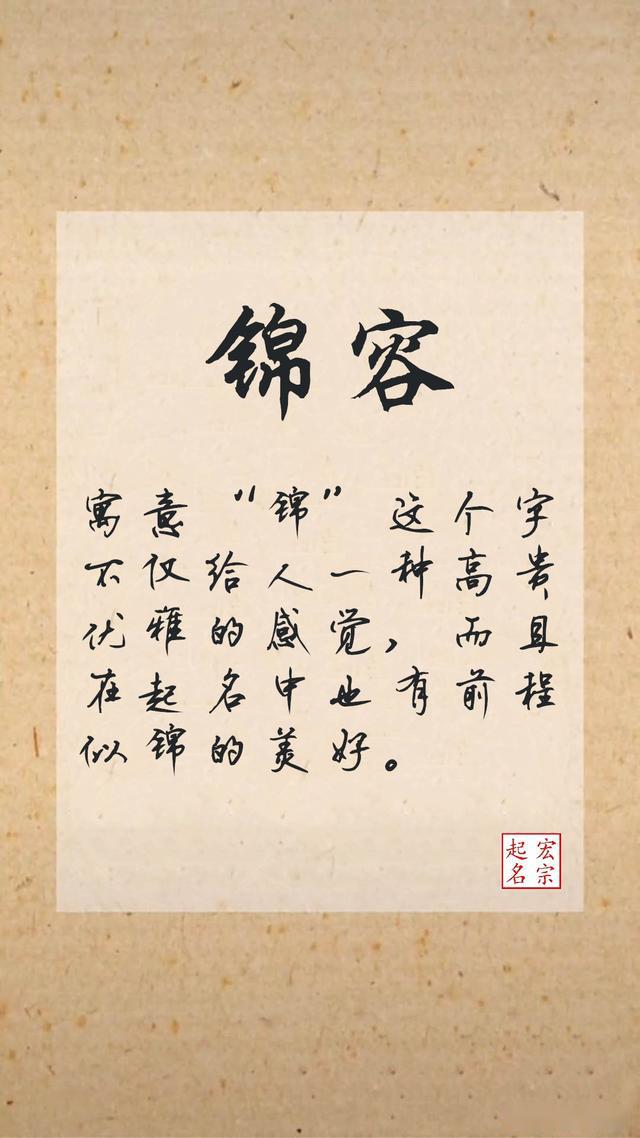 锦容
寓意“锦”这个字
不仅给人一种高贵
优雅的感觉，而且
在起名中也有前程
似锦的美好。
宏宗
起名